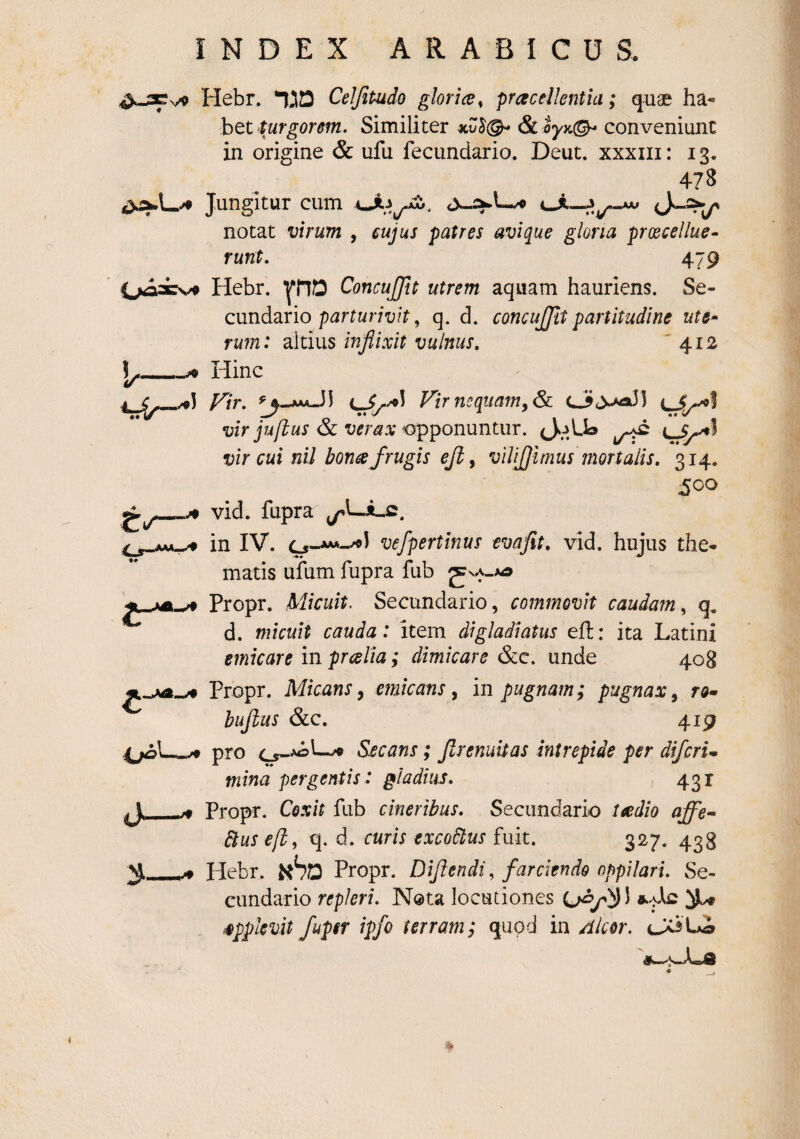 INDEX ARABICUS.
مجد Hebr. מגד Celſitudo gloriæ, præcellentia; quæ ha-
bet turgorem. Similiter κῦδ@ & ὄγκ@ conveniunt
in origine & uſu ſecundario. Deut. XXXIII: 13.
478
ماجد Jungitur cum شريف. رجل شريف ماجد
notat virum, cujus patres avique gloria præcellue-
runt. 479
مخض Hebr. מחץ Concuſſit utrem aquam hauriens. Se-
cundario parturivit, q. d. concuſſit partitudine ute-
rum: altius inflixit vulnus. 412
مرا Hinc
امرى Vir. امرى السوء Vir nequam, & امرى الصدق
vir juſtus & verax opponuntur. امرى غير طايل
vir cui nil bonæ frugis eſt, viliſſimus mortalis. 314.
500
vid. ſupra
مسى in IV. امسى veſpertinus evaſit. vid. hujus the-
matis uſum ſupra ſub صبح
مصع Propr. Micuit. Secundario, commovit caudam, q.
d. micuit cauda: item digladiatus eſt: ita Latini
emicare in prælia; dimicare &c. unde 408
مصع Propr. Micans, emicans, in pugnam; pugnax, ro-
buſtus &c. 419
ماض pro ماضى Secans; ſtrenuitas intrepide per diſcri-
mina pergentis: gladius. 431
مل Propr. Coxit ſub cineribus. Secundario tædio affe-
ctus eſt, q. d. curis excoctus fuit. 327. 438
ملا Hebr. מלא Propr. Diſtendi, farciendo oppilari. Se-
cundario repleri. Nota locutiones ملا عليه الارض
applevit ſuper ipſo terram; quod in Alcor. ضاقت
عليه